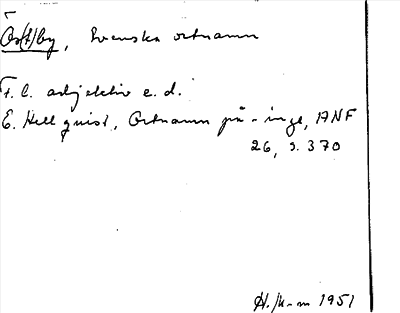 Ös(t)by, Svenska ortnamn
F. l. adjektiv e. d.
E. Hellquist, Ortnamn på -inge, ANF
26, s. 370
H. K-m 1951